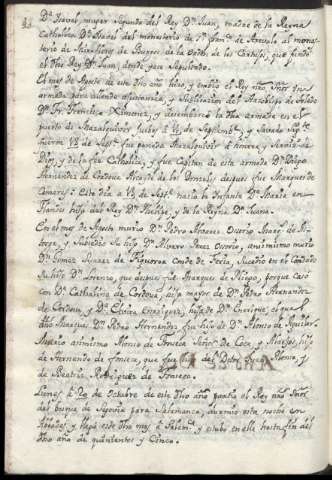 Dª Isabel, muger segunda del Rey Dn Juan, madre de la Reyna
Catholica Dª Isabel del monasterio de Sn Franco de Arevalo al monas-
terio de Miraflores de Burgos de la Orden de los Cartujos, que fundó
el dho Rey Dn Juan, donde yace sepultado.
El mes de Agosto de este dho año hizo, y embió el Rey nro Señor
armada para allende a instancia, y suplicacion del Arzobispo de Toledo
Dn Fr. Francisco Ximenez, y desembarcó la dha armada en el
puerto de Mazalquivir
fueron
fue ganada Mazalquivir á honrra, y servicio de
Dios, y de la fee Catholica, y fue Capitan de esta armada Dn Diego
Hernandez de Cordova Alcayde de los Donceles, despues fue Marques de
Comares. Este dia
nació la Infanta Dª Maria en
Flandes hija del Rey Dn Phelipe, y de la Reyna Dª Juana.
En el mes de Agosto murió Dn Pedro Alvarez Osorio Marq. de As-
torga, y subcedió su hijo Dn Alvaro Perez Osorio, ansimismo murió
Dn Gomez Suarez de Figueroa Conde de Feria, sucedio en el Condado
su hijo Dn Lorenzo, que despues fue Marques de Priego, porque casó
con Dª Cathalina de Cordova, hija mayor de Dn Pedro Hernandez
de Cordova, y Dª Elvira Enrriquez, hija de Dn Enrique, el qual
dho Marques Dn Pedro Hernandez fue hijo de Dn Alonso de Aguilar.
Murió asimismo Alonso de Fonseca Señor de Coca, y Alaejos, hijo
de Hernando de Fonseca, que fue hijo del Dotor Juan Alonso, y
de Beatriz Rodriguez de Fonseca.
Lunes á 20 de Octubre de este dho año partió el Rey nro Señor
de Segovia para Salamanca, durmió esta noche en
y llegó este dho mes á Salamca y estubo en ella hasta fin del
dho año de quinientos y Cinco.